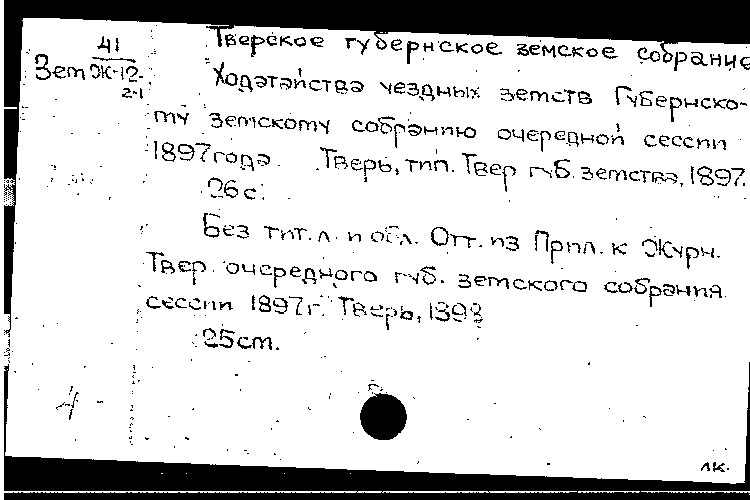 41
Зет Ж-12.
2-1
Тверское губернское земское собрание
Ходатайства уездных земств Губернско-
му земскому собранию очередной сессии
1897 года. Тверь, тип. Твер губ. земства, 1897.
26 с.
Без тит. л. и обл. Отт. из Прил. к Журн.
Твер. очередного губ. земского собрания
сессии 1897 г. Тверь, 1898
25 cm.
4
лк.